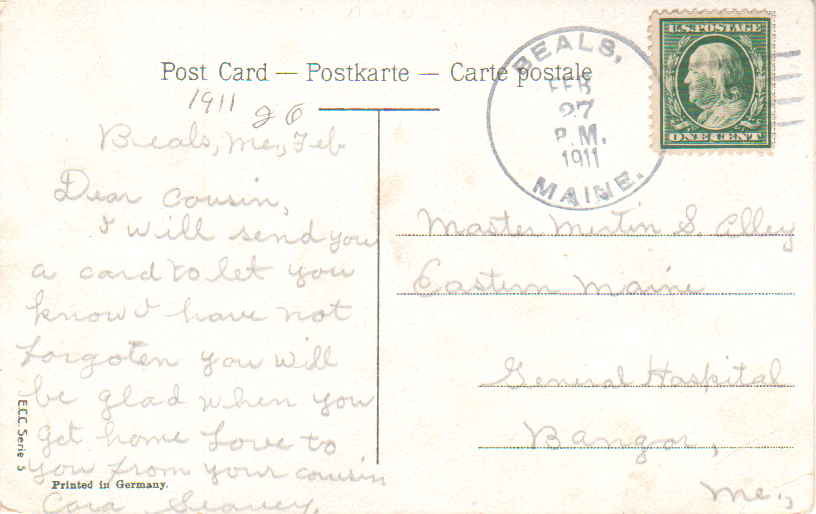 Post Card — Postkarte — Carte postale
1911 26
Beals, Me., Feb
Dear Cousin,
I will send you
a card to let you
know I have not
forgoten you will
be glad when you
get home Love to
you from your cousin
Cora Seavey.
E.C.C. Serie 5
Printed in Germany.
BEALS,
FEB
27
P.M.
1911
MAINE.
U.S. POSTAGE
ONE CENT
Master Mertin S Alley
Eastern Maine
General Hospital
Bangor,
Me.,